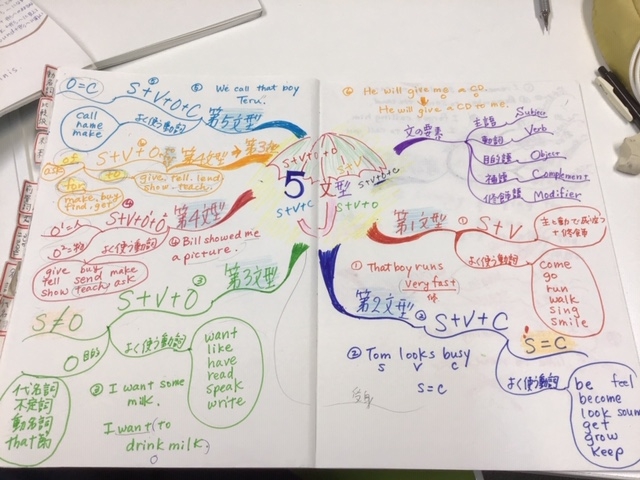 O=C
S+V+O+C
⑤ We call that boy
Teru.
call
name
make
よく使う動詞
第5文型
of
for
S+V+O
第4文型→第3文型
to
give, tell, lend
show, teach
make, buy
find, get
S+V+O+O
第4文型
O¹=人
O²=物
よく使う動詞
④ Bill showed me
a picture.
give buy make
tell send
show teach ask
③
S+V+O
第3文型
S≠O
O 目的
よく使う動詞
代名詞
不定詞
動名詞
that節
want
like
have
read
speak
write
③ I want some
milk.
I want (to
drink milk.)
O
5文型
S+V+O+O
S+V
S+V+O+C
S+V+C
S+V+O
⑥ He will give me a CD.
He will give a CD to me.
文の要素
主語 Subject
動詞 Verb
目的語 Object
補語 Complement
修飾語 Modifier
第1文型
①
S+V
主に動で成り立つ
+修飾
よく使う動詞
come
go
run
walk
sing
smile
① That boy runs
very fast
修
第2文型
②
S+V+C
S=C
② Tom looks busy
S V C
S=C
よく使う動詞
be feel
become
look soun
get
grow
keep